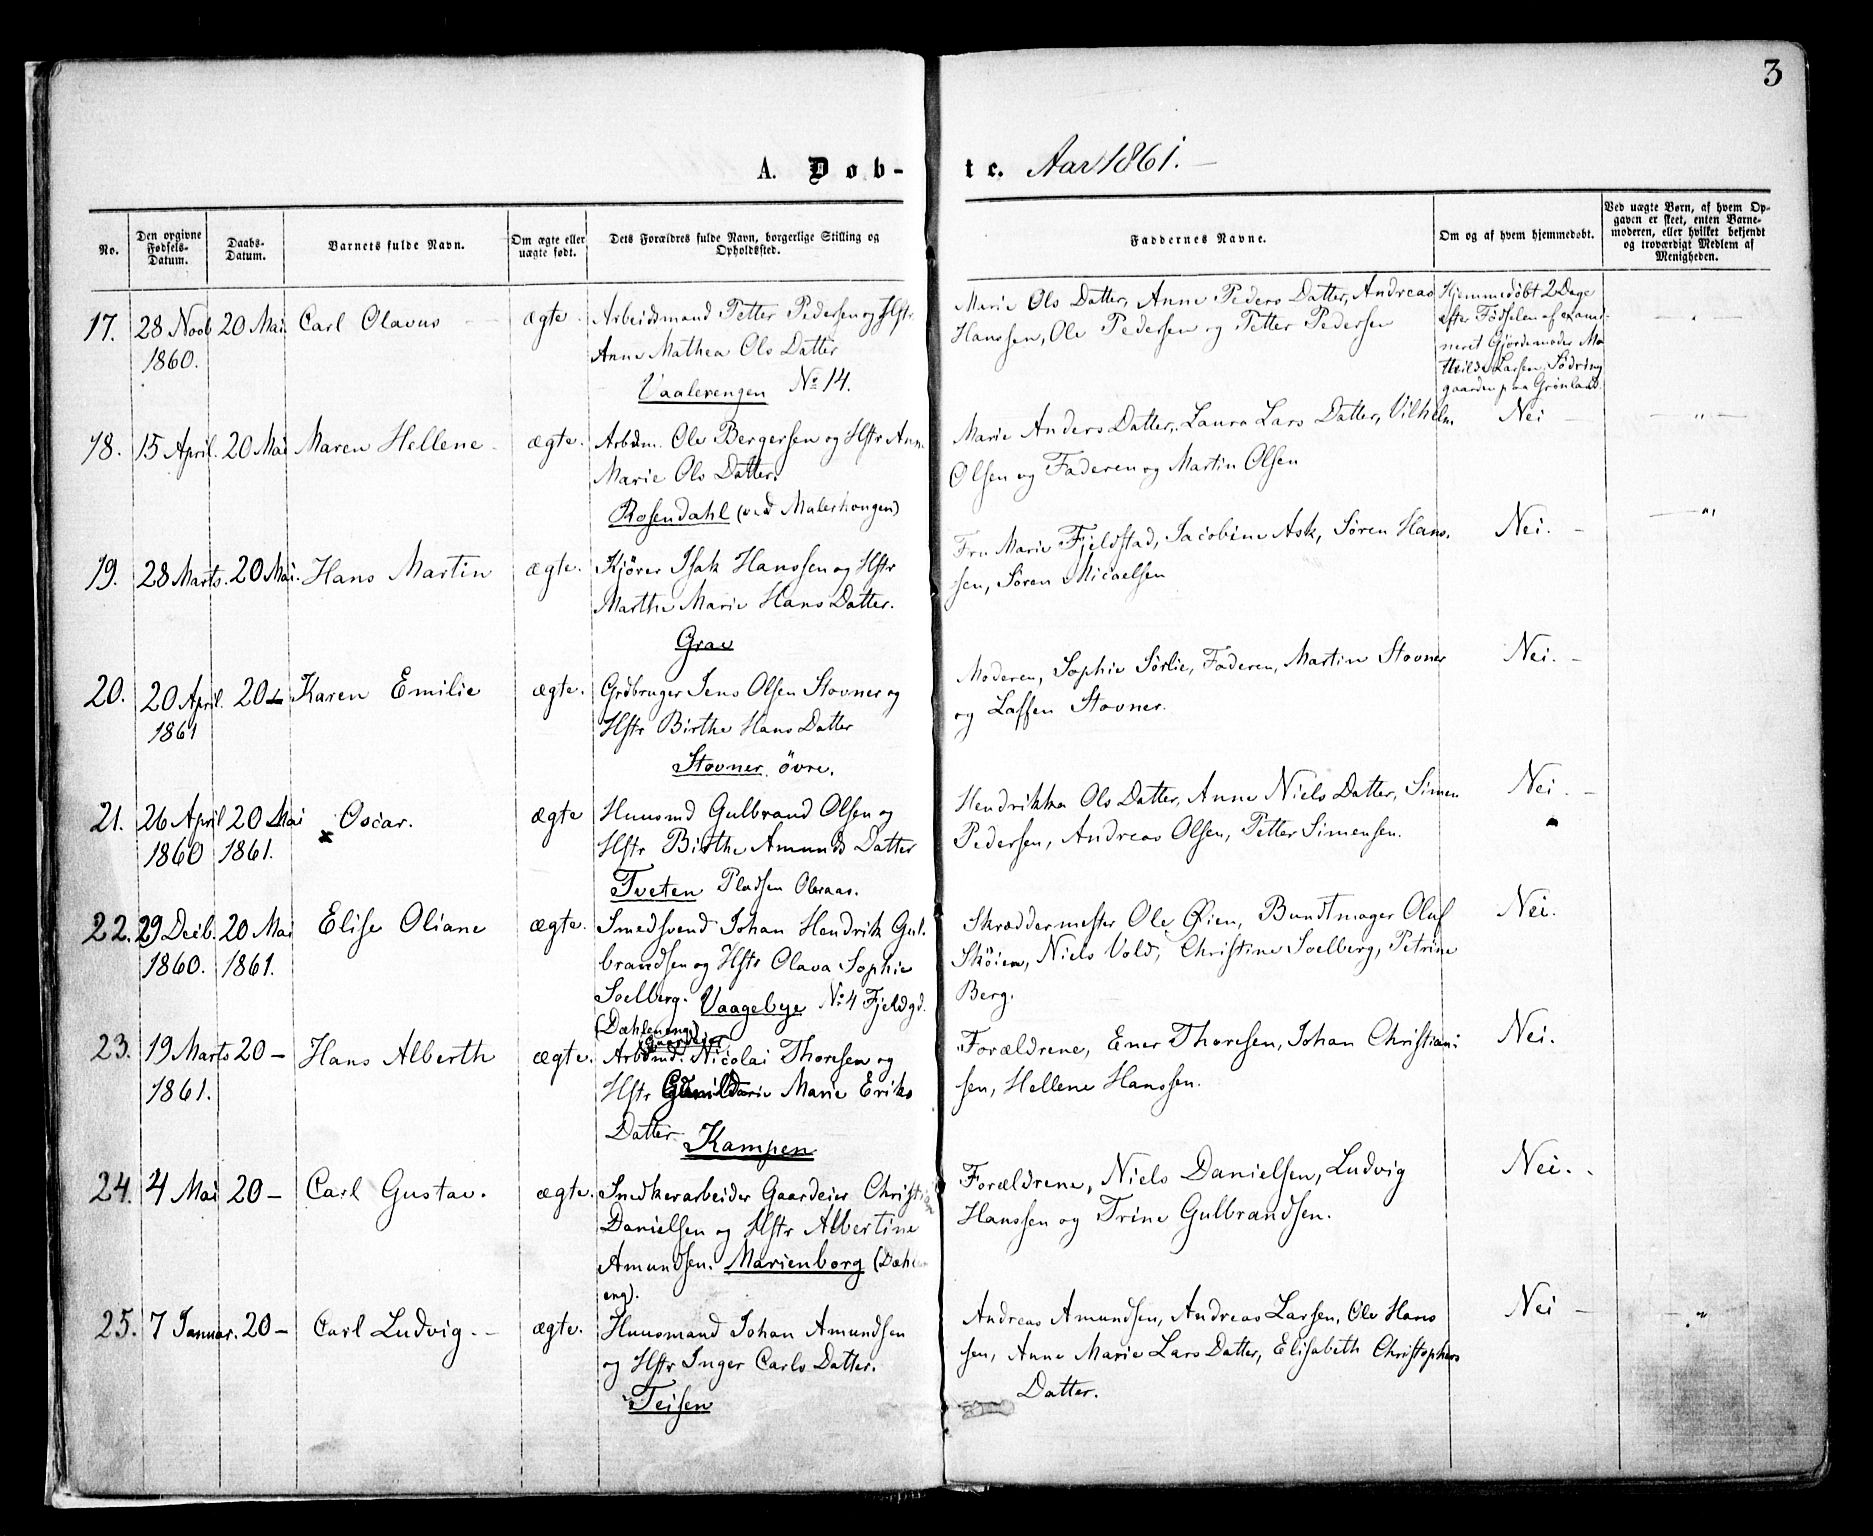 3
A. Døb-te. Aar 1861.
No.
Den opgivne Fødsels-Datum.
Daabs-Datum.
Barnets fulde Navn.
Om ægte eller uægte født.
Dets Forældres fulde Navn, borgerlige Stilling og Opholdssted.
Faddernes Navne.
Om og af hvem hjemmedøbt.
Ved uægte Børn, af hvem Opgaven er skeet, enten Barnemoderen, eller hvilket bekjendt og troværdigt Medlem af Menigheden.
17. 28 Novb 20 Mai Carl Olavus ægte.
1860.
Arbeidsmand Petter Pedersen og Hstr
Anne Mathea Ols Datter
Vaalerengen No 14.
Marie Ols Datter, Anne Peders Datter, Andreas
Hanssen, Ole Pedersen og Petter Pedersen
Hjemmedøbt 2 Dage
efter Fødselen af exami-
neret Gjordemoder Ma
thilde Larsen, Södring
gaarden paa Grønland.
18. 15 April. 20 Mai Maren Hellene ægte.
Arbdm. Ole Bergersen og Hstr Anne
Marie Ols Datter.
Rosendahl (ved Malerhougen)
Marie Anders Datter, Laura Lars Datter, Vilhelm
Olsen og Faderen og Martin Olsen
Nei
19. 28 Marts. 20 Mai. Hans Martin ægte.
Kjörer Isak Hanssen og Hstr
Marthe Marie Hans Datter.
Grav
Fru Marie Fjeldstad, Jacobine Ask, Sören Hans.
sen, Sören Micaelsen
Nei.
20. 20 April. 20 - Karen Emilie ægte.
1861
Grdbruger Jens Olsen Stovner og
Hstr Birthe Hans Datter
Stovner övre.
Moderen, Sophie Sörlie, Faderen, Martin Stovner
og Lassen Stovner.
Nei.
21. 26 April 20 Mai Oscar. ægte
1860 1861.
Huusmd Gulbrand Olsen og
Hstr Birthe Amunds Datter
Tveten Pladsen Olsraas.
Hendrikka Ols Datter, Anne Niels Datter, Simen
Pedersen, Andreas Olsen, Petter Simensen.
Nei.
22. 29 Decb. 20 Mai Elise Oliane ægte.
1860. 1861.
Smedsvend Johan Hendrik Gul.
brandsen og Hstr Olava Sophie
Soelberg. Vaagebye No 4 Fjeldgd.
(Dæhleneng)
Skræddermester Ole Øien, Bundtmager Oluf
Sköien, Niels Vold, Christine Soelberg, Petrine
Berg.
Nei.
23. 19 Marts 20 - Hans Alberth ægte.
1861.
Arbdmd. Nicolai Thoresen og
Hstr Marie Eriks
Datter Kampen
Forældrene, Ener Thoresen, Johan Christian:
sen, Hellene Hanssen.
Nei.
24. 4 Mai 20 - Carl Gustav. ægte.
Snedkerarbeider Gaardeier Christian
Danielsen og Hstr Albertine
Amundsen. Marienborg (Dæhlen
eng).
Forældrene, Niels Danielsen, Ludvig
Hanssen og Trine Gulbrandsen.
Nei.
25. 7 Januar. 20 - Carl Ludvig. ægte.
Huusmand Johan Amundsen
og Hstr Inger Carls Datter.
Teisen
Andreas Amundsen, Andreas Larsen, Ole Hans
sen, Anne Marie Lars Datter, Elisabeth Christophers
Datter.
Nei